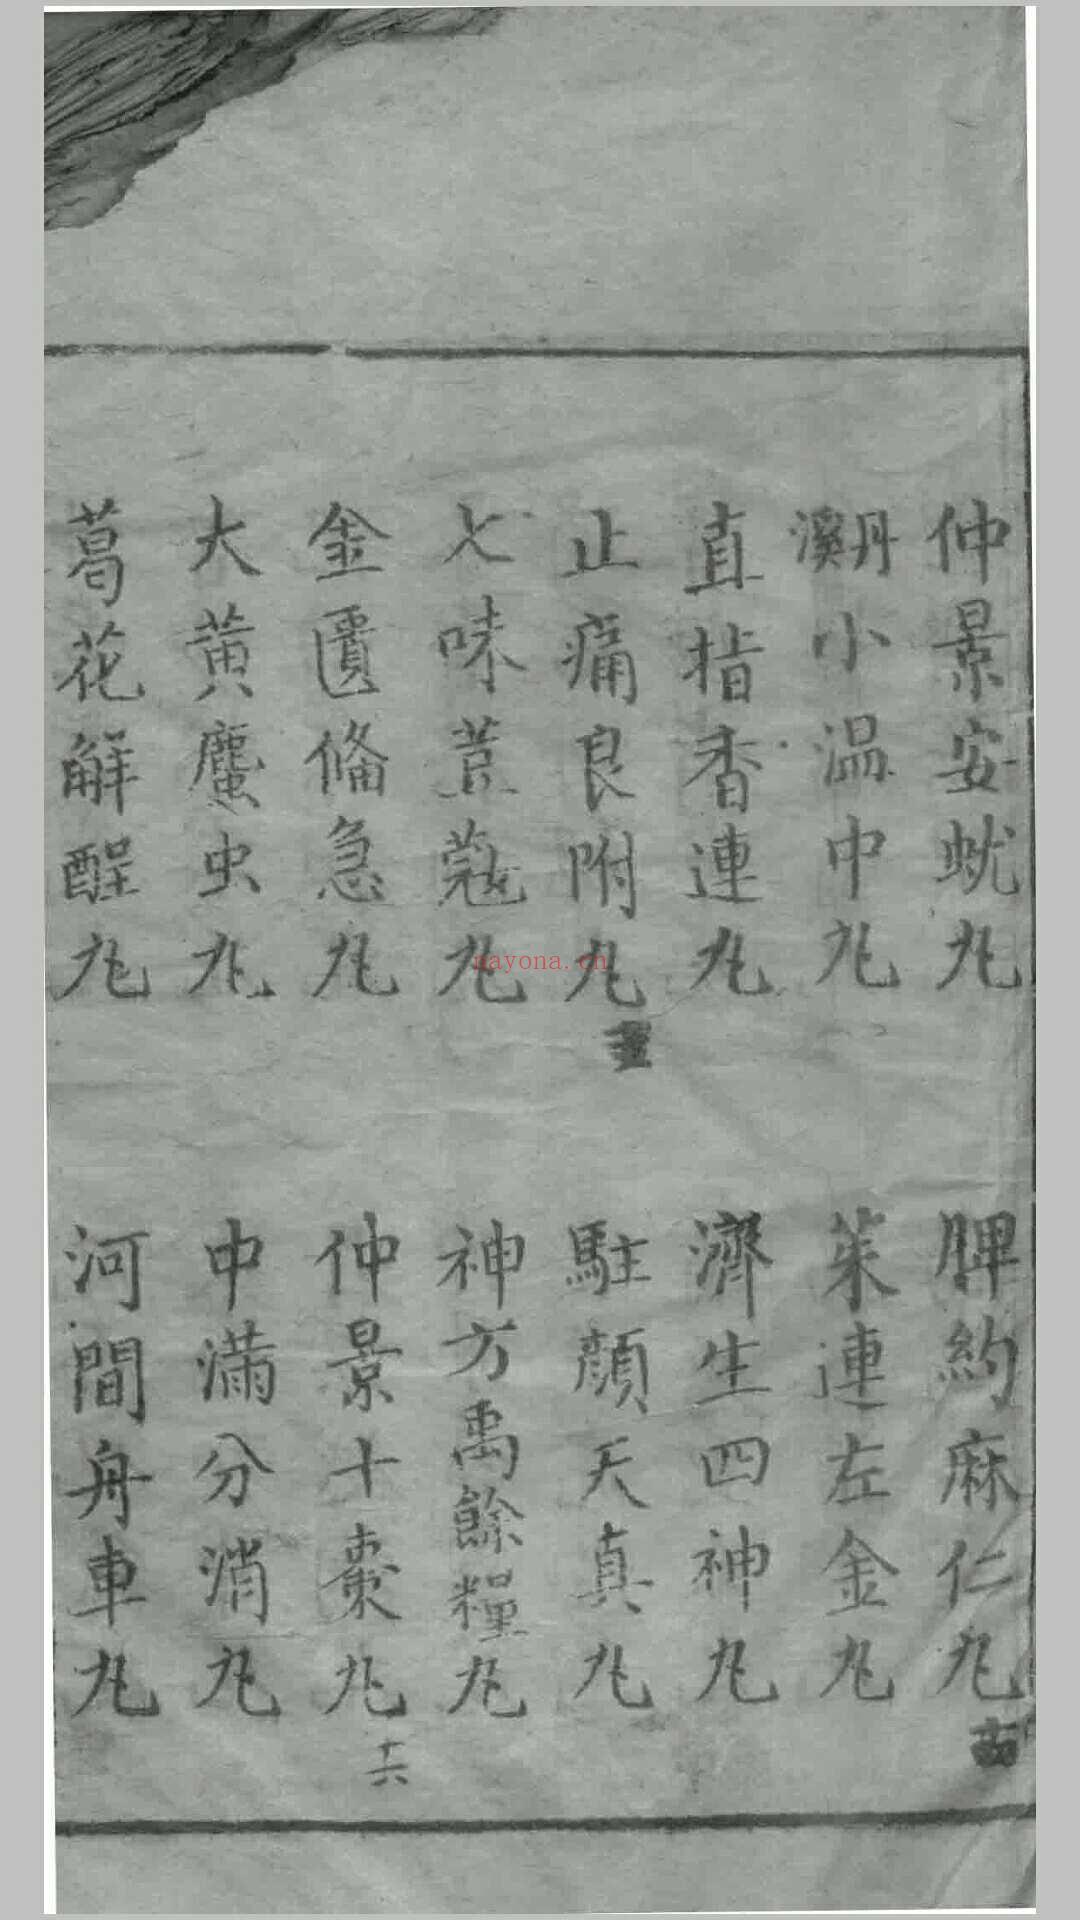 仲景安蚘丸
脾約麻仁丸
丹溪小溫中丸
茱連左金丸
直指香連丸
濟生四神丸
止痛良附丸
駐顏天真丸
七味荳蔻丸
神方禹餘糧丸
金匱備急丸
仲景十棗丸
十六
大黃䗪虫丸
中滿分消丸
葛花解酲丸
河間舟車丸
nayona.cn